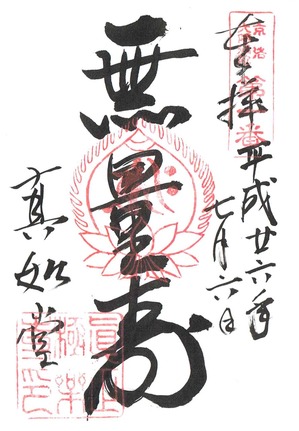 奉拝
平成廿六年
七月六日
無量寿
真如堂